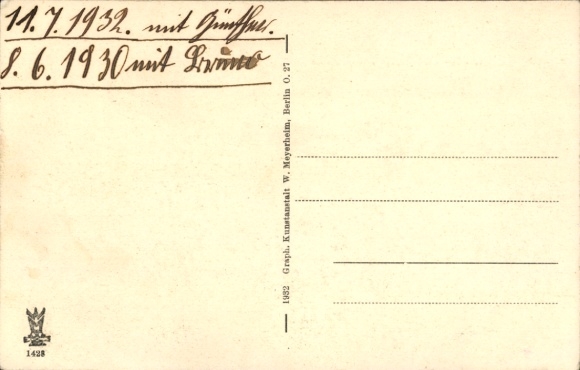 11. 7. 1932. mit Günther.
8. 6. 1930 mit Bruno
1932 Graph. Kunstanstalt W. Meyerheim, Berlin O. 27
1428